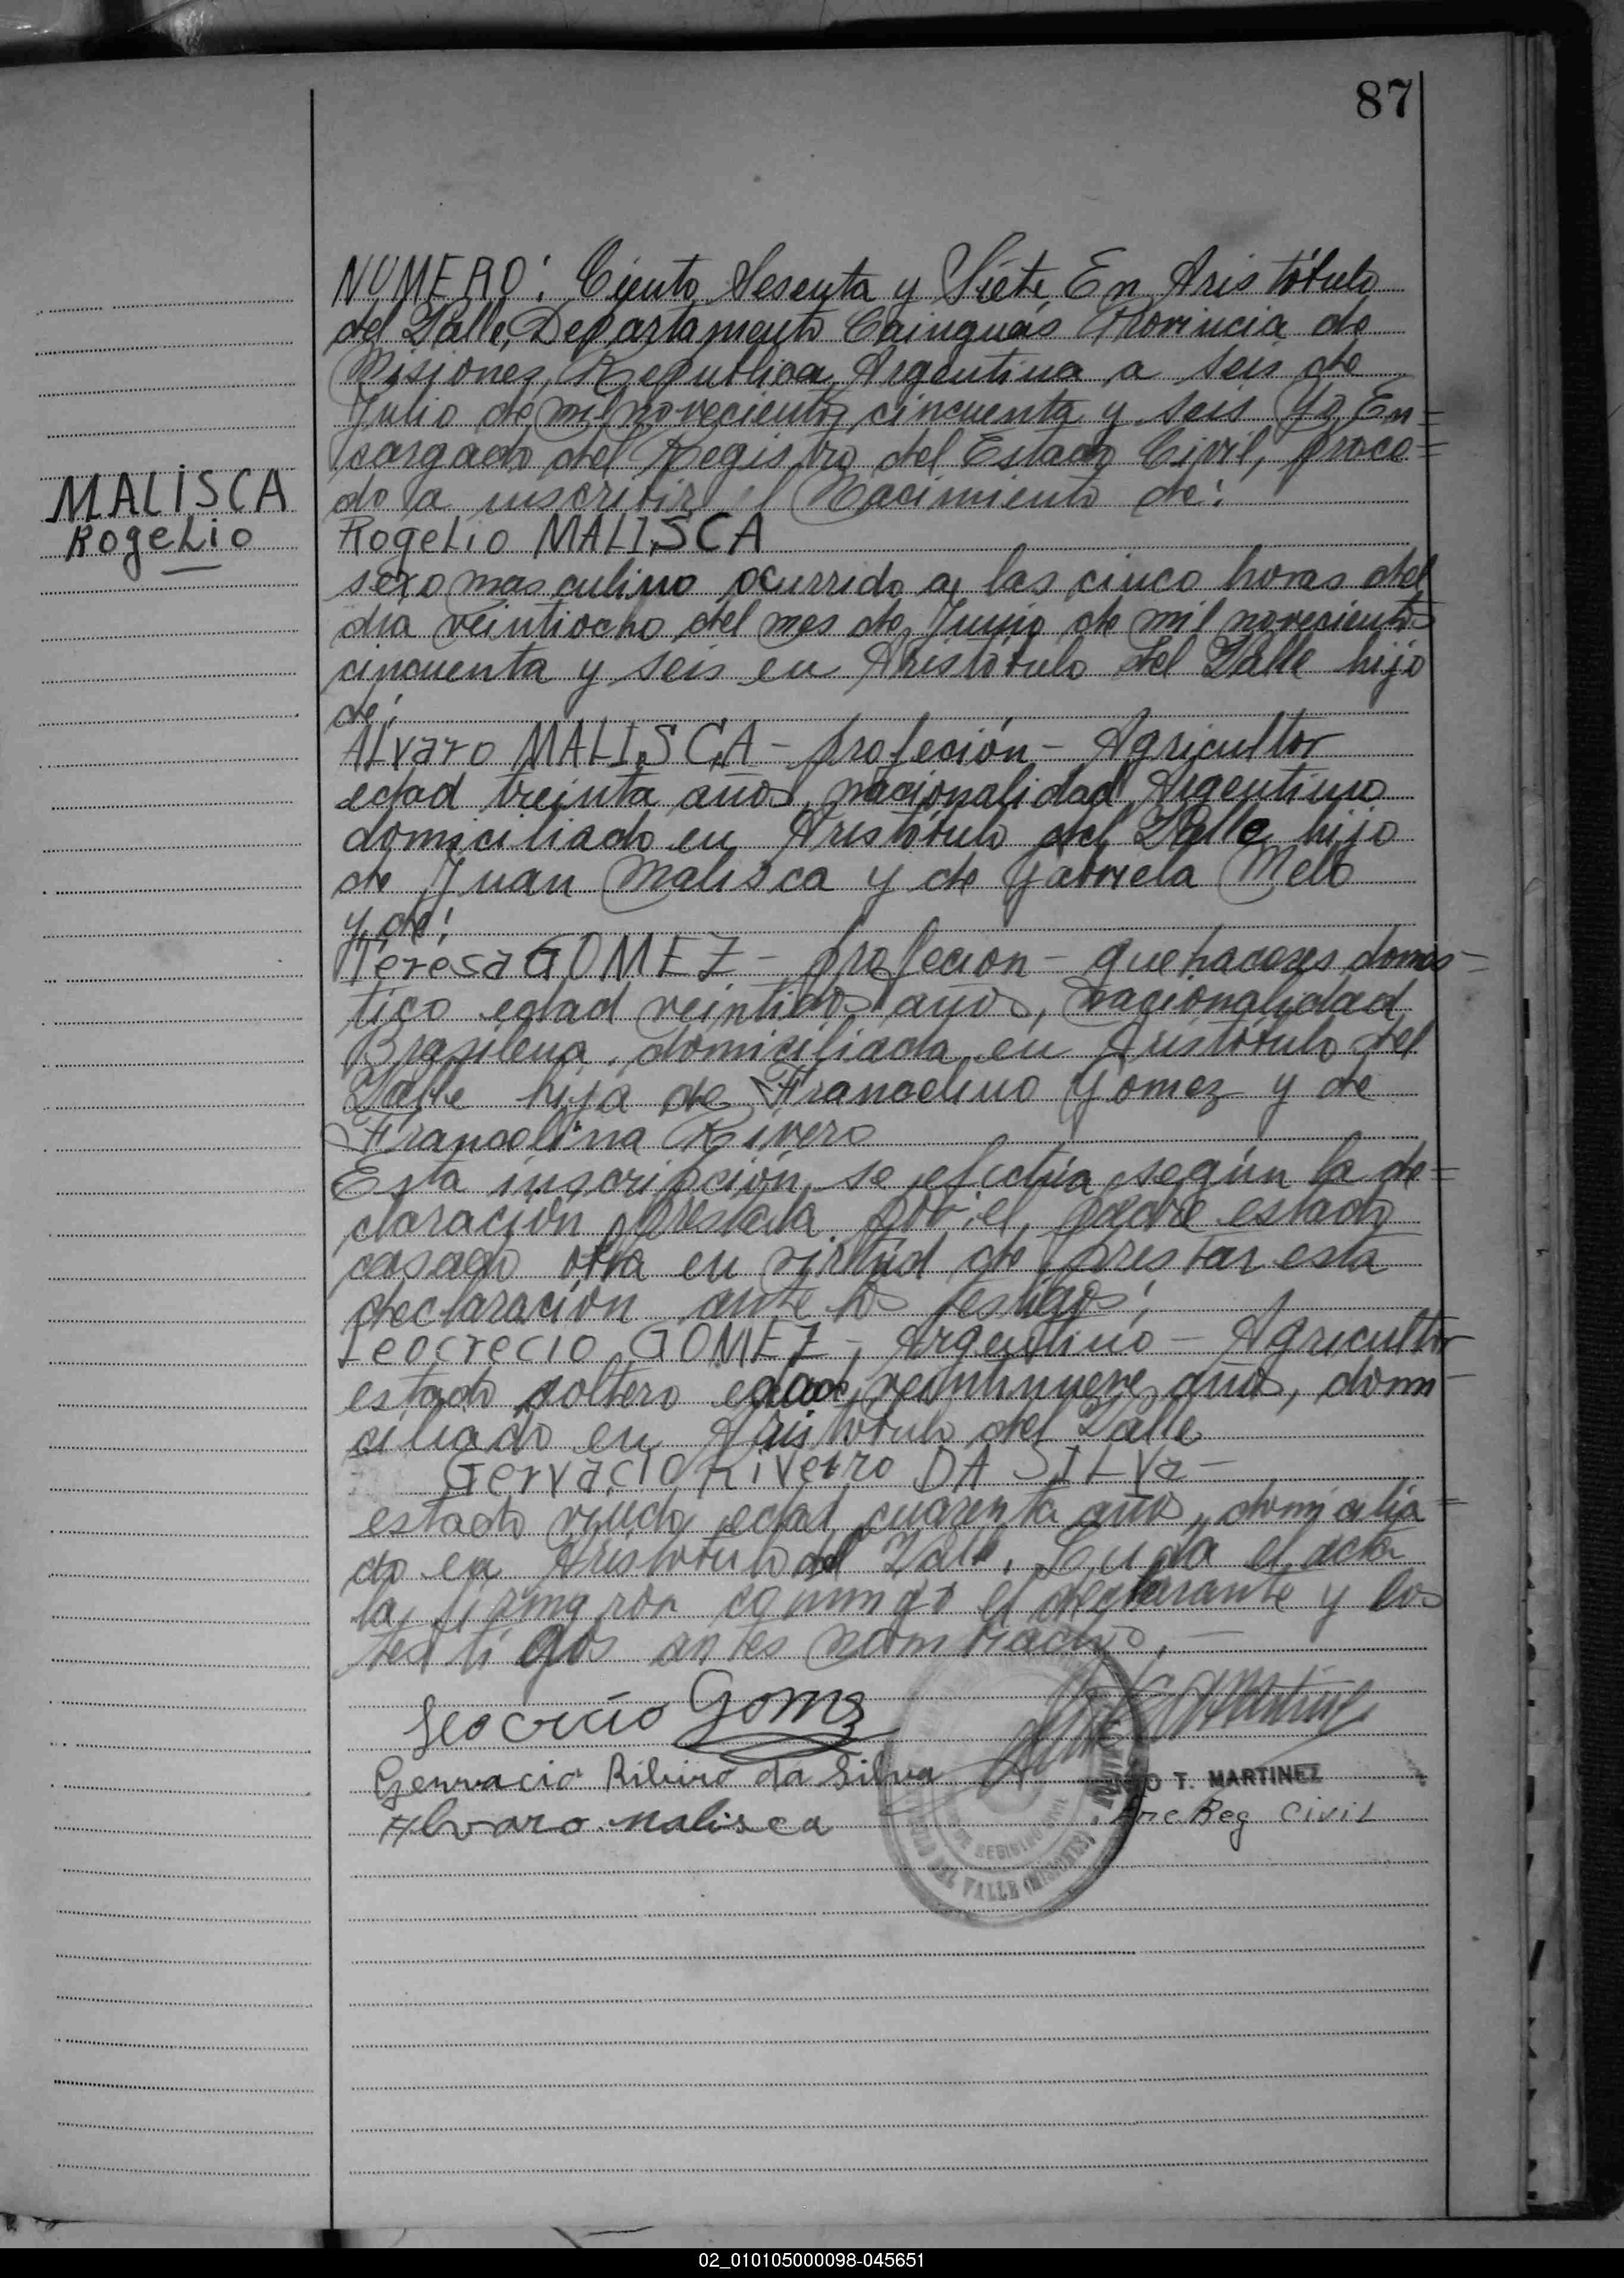 87
NUMERO: Ciento Sesenta y Siete En Aristóbulo
del Valle, Departamento Cainguás Provincia de
Misiones, República Argentina a seis de
Julio de mil novecientos cincuenta y seis Yo En=
cargado del Registro del Estado Civil, proce=
do a inscribir el Nacimiento de:
MALISCA
Rogelio
Rogelio MALISCA
sexo masculino ocurrido a las cinco horas del
dia veintiocho del mes de Junio de mil novecientos
cincuenta y seis en Aristóbulo del Valle hijo
de:
Alvaro MALISCA - profeción - Agricultor
edad treinta años, nacionalidad Argentino
domiciliado en Aristóbulo del Valle hijo
de Juan Malisca y de Gabriela Melo
y de:
Teresa GOMEZ - profecion - quehaceres domes=
tico edad veintidos años, nacionalidad
Brasileña, domiciliada en Aristóbulo del
Valle hija de Francelino Gomez y de
Francelina Rivero
Esta inscripción se efectúa según la de=
claración prestada por el padre estado
casado en virtud de prestar esta
declaración ante los testigos:
Leocrecio GOMEZ, Argentino - Agricultor
estado soltero edad veintinueve años, domi-
ciliado en Aristóbulo del Valle
Gervacio Riveiro DA SILVa -
estado viudo edad cuarenta años, domicilia=
do en Aristóbulo del Valle. Leida el acta
la firmaron conmigo el declarante y los
testigos antes nombrados. -
Leocricio Gomz
Gervacio Ribiro da Silva
Alvaro Malisca
O T. MARTINEZ
Enc Reg Civil
REGISTRO CIVIL
DEL VALLE (MISIONES)
02_010105000098-045651